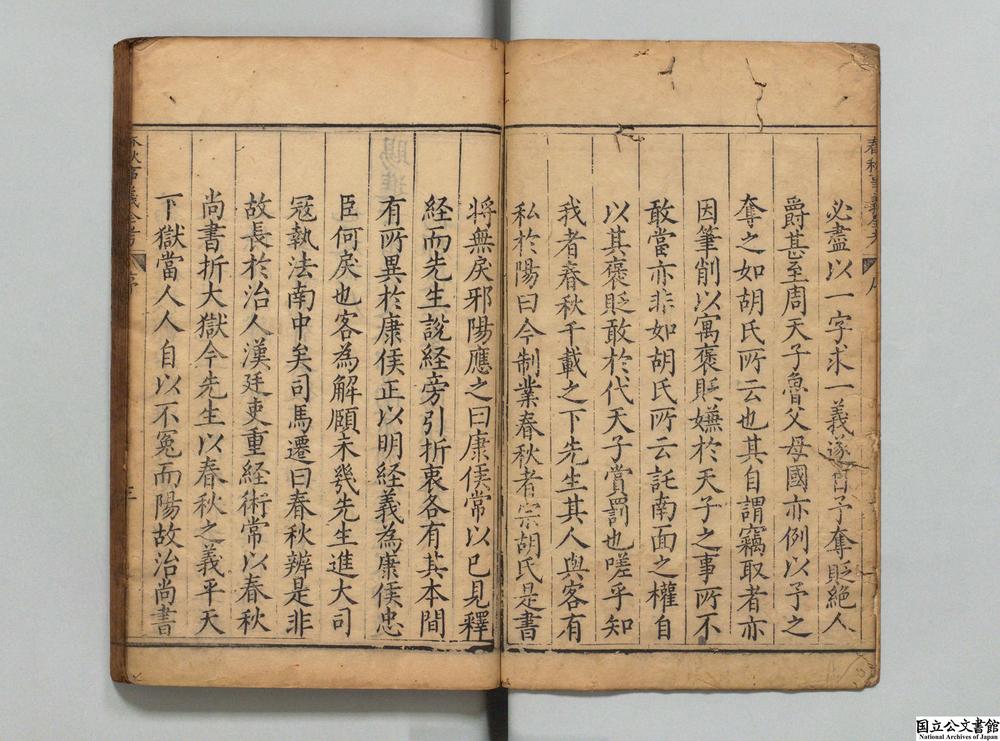 必盡以一字求一義遂曰予奪貶絕人
爵甚至周天子魯父母國亦例以予之
奪之如胡氏所云也其自謂竊取者亦
因筆削以寓褒貶嫌於天子之事所不
敢當亦非如胡氏所云託南面之權自
以其褒貶敢於代天子賞罰也嗟乎知
我者春秋千載之下先生其人與客有
私於陽曰今制業春秋者宗胡氏是書
將無戾邪陽應之曰康侯常以已見釋
経而先生說経旁引折衷各有其本間
有所異於康侯正以明経義為康侯忠
臣何戾也客為解頤未幾先生進大司
冦執法南中矣司馬遷曰春秋辨是非
故長於治人漢廷吏重経術常以春秋
尚書折大獄今先生以春秋之義平天
下獄當人人自以不冤而陽故治尚書
春秋
序
三
国立公文書館
National Archives of Japan